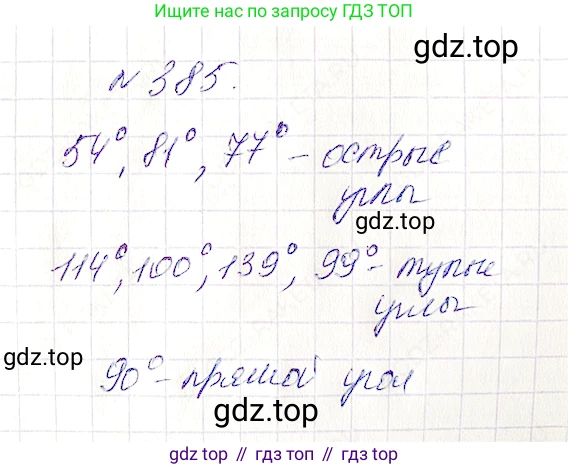 Ищите нас по запросу ГДЗ ТОП
gdz.top
№ 385.
54°, 81°, 77° - острые
углы
gdz.top
114°, 100°, 139°, 99° - тупые
углы
gdz.top
90° - прямой угол
gdz.top
gdz.top // гдз.топ // gdz.top // гдз.топ